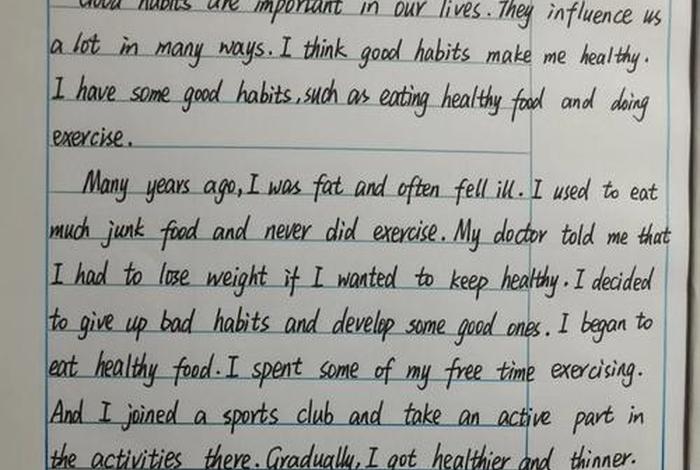 Good habits are important in our lives. They influence us
a lot in many ways. I think good habits make me healthy.
I have some good habits, such as eating healthy food and doing
exercise.
Many years ago, I was fat and often fell ill. I used to eat
much junk food and never did exercise. My doctor told me that
I had to lose weight if I wanted to keep healthy. I decided
to give up bad habits and develop some good ones. I began to
eat healthy food. I spent some of my free time exercising.
And I joined a sports club and take an active part in
the activities there. Gradually, I got healthier and thinner.